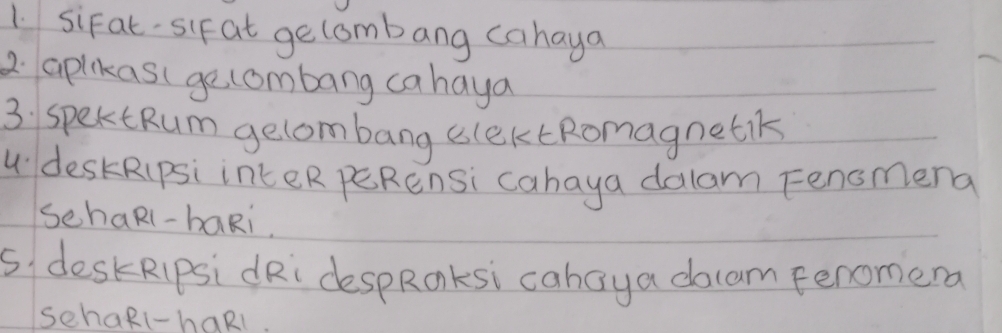 1. Sifat-sifat gelombang cahaya
2. aplikasi gelombang cahaya
3. spektRum gelombang elektRomagnetik
4. deskRipsi inteRpeRensi cahaya dalam Fenomena
sehaRi-haRi.
5. deskRipsi dRi despRaksi cahaya dalam Fenomena
sehaRi-haRi.